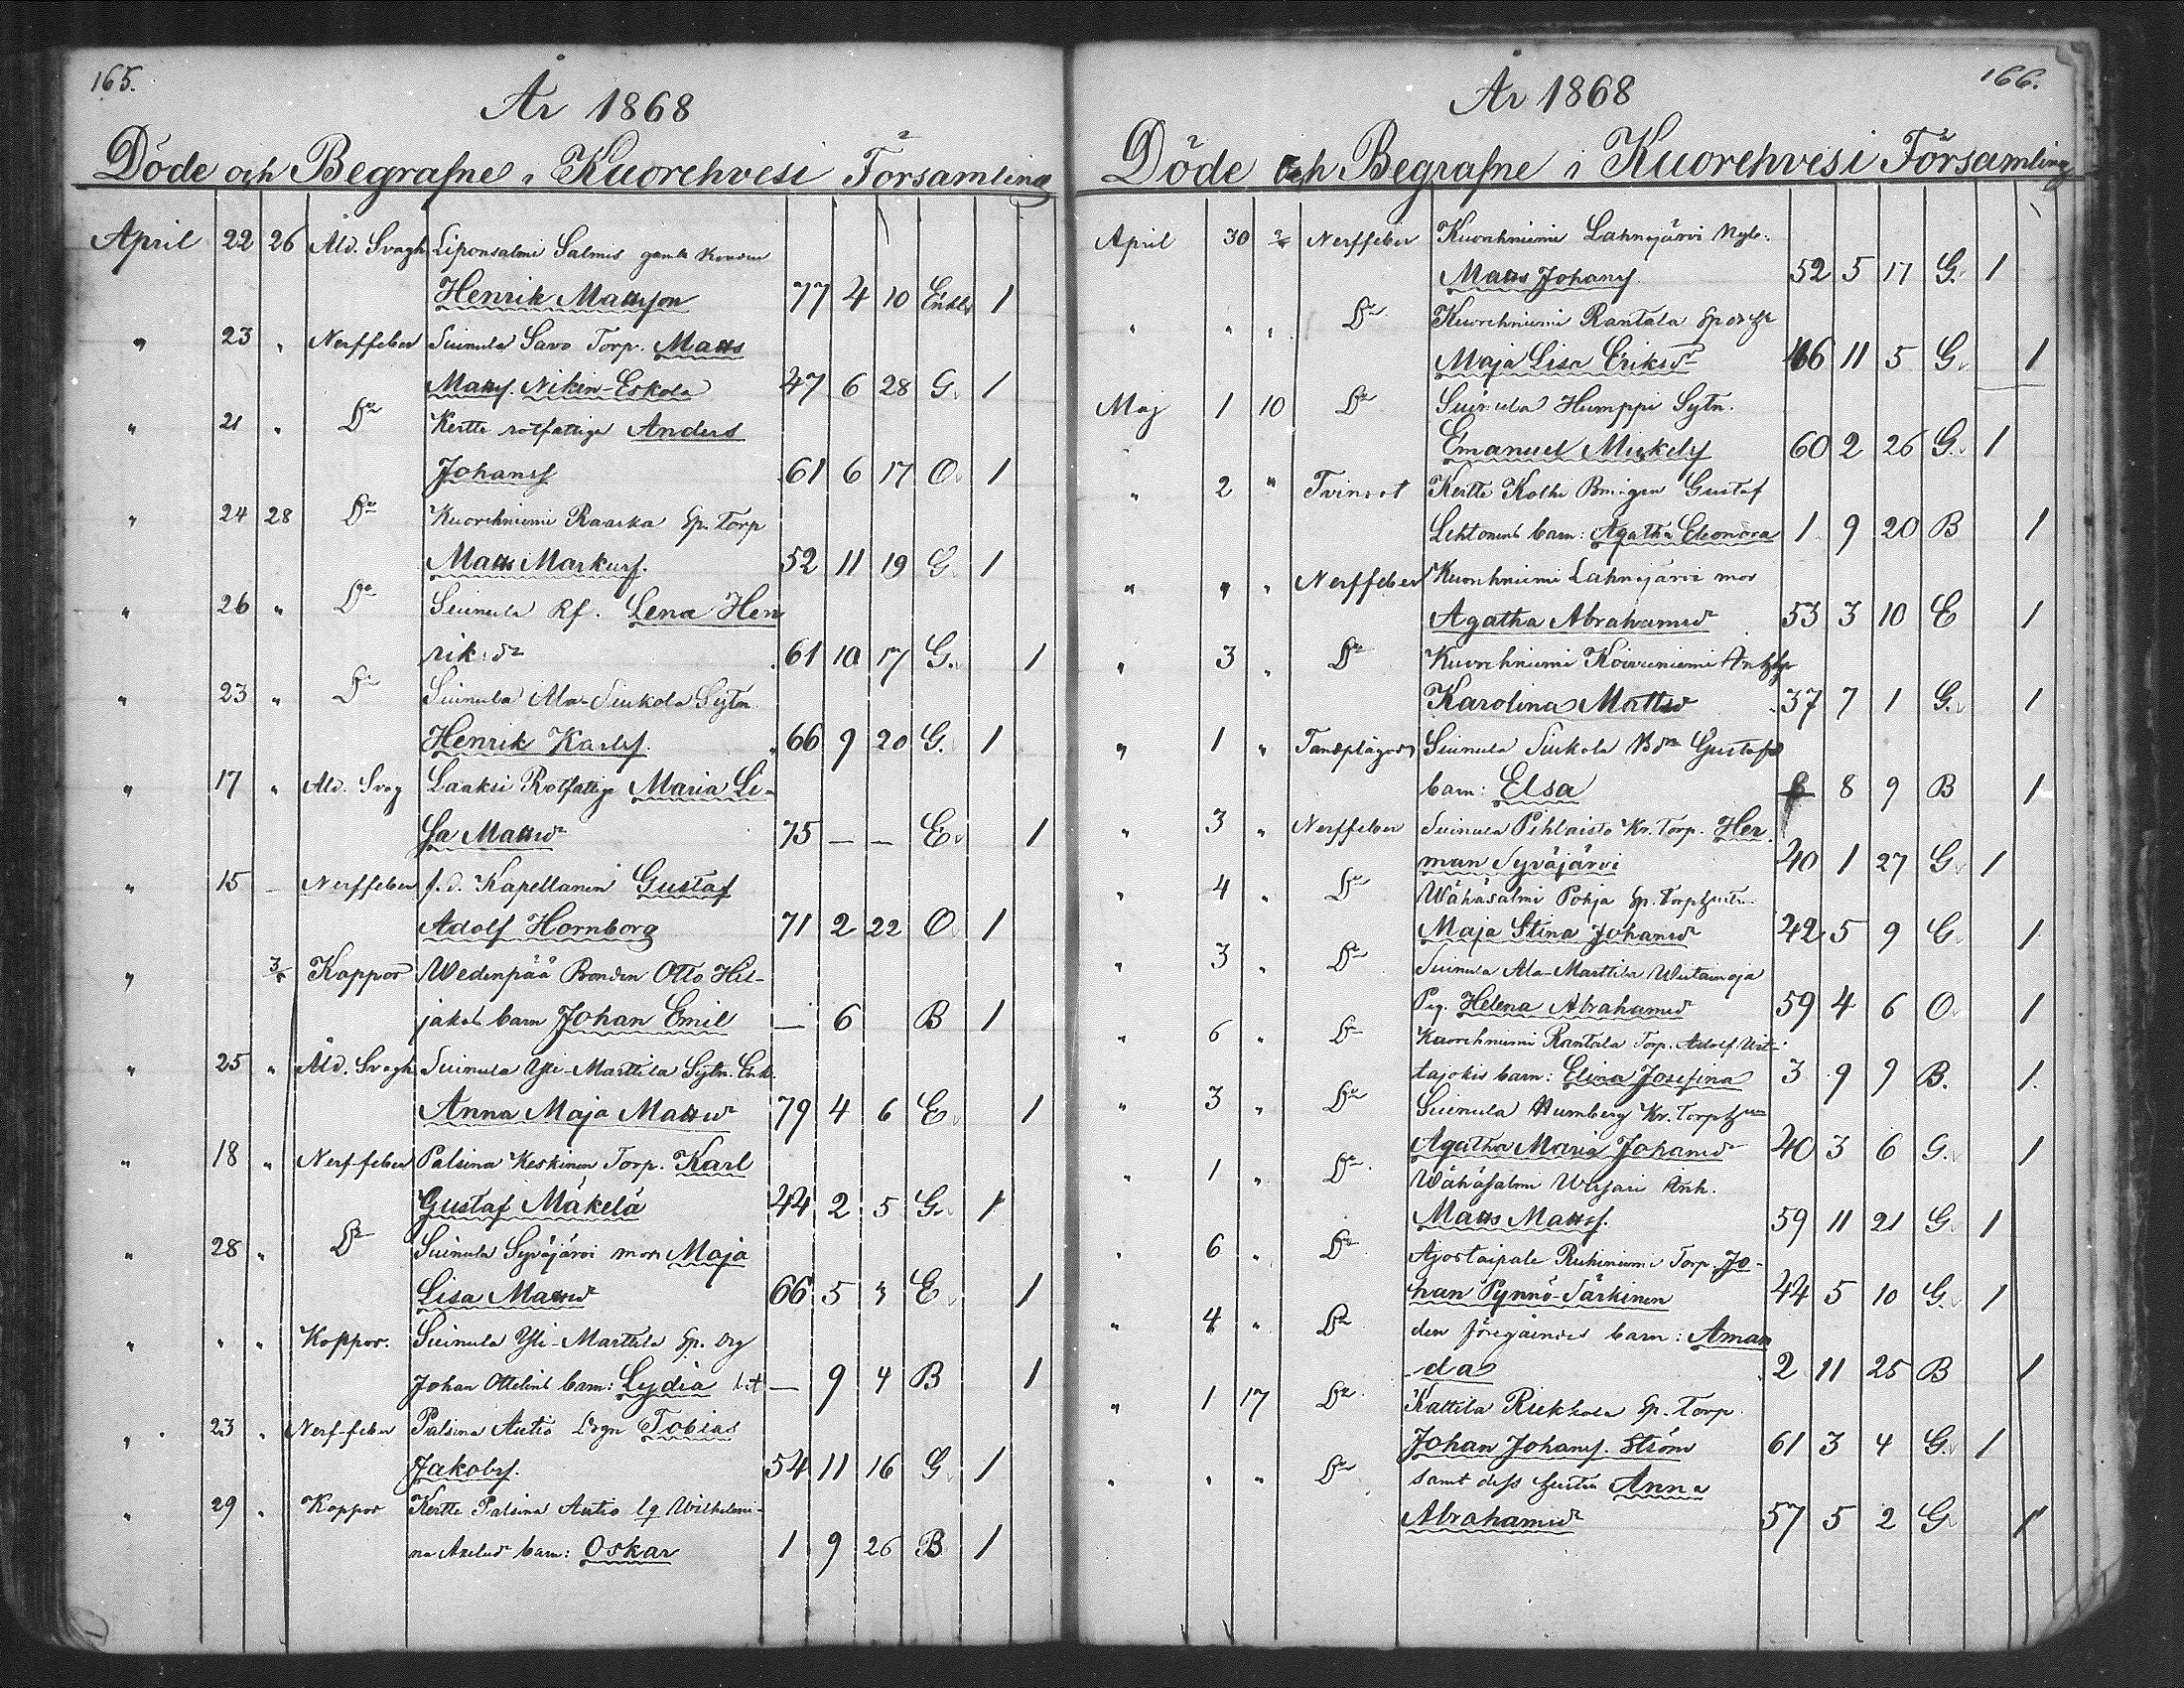 165.
År 1868
Döde och Begrafne i Kuorehvesi Församling
April 22 26 Åld. Svagh Liponsalmi Salmis gamla
Henrik Mattsson 77 4 10 Enkl. 1
" 23 " Nerffeber Suinula Savo Torp. Matts
Mattsf. Nikin-Eskola 47 6 28 G. 1
" 21 " Do Kertte rotfattige Anders
Johansf 61 6 17 O. 1
" 24 28 Do Kuorehniemi Raaska Sp. Torp
Matts Markusf. 52 11 19 G 1
" 26 " Do Suinula Rf. Lena Hen
riksdr 61 10 17 G. 1
" 23 " Do Suinula Ala-Siukola Sytn.
Henrik Karlsf. 66 9 20 G. 1
" 17 " Åld. Svag Laaksi Rotfattige Maria Li-
sa Mattsdr 75 — — E. 1
" 15 — Nerffeber f.d. Kapellanen Gustaf
Adolf Hornborg 71 2 22 O 1
" 3/5 Koppor Wedenpää Bonden Otto Hil-
jakas barn Johan Emil — 6 B 1
" 25 " Åld. Svagh Suinula Yli-Marttila Sytn. Enk.
Anna Maja Mattsdr 79 4 6 E 1
" 18 " Nerf-feber Palsina Keskinen Torp. Karl
Gustaf Mäkelä 44 2 5 G. 1
" 28 " Do Suinula Syväjärvi mor Maja
Lisa Mattsdr 66 5 3 E 1
" " " Koppor. Suinula Yli-Marttila Sp. Drg
Johan Ottelins barn: Lydia — 9 4 B 1
" 23 " Nerf-feber Palsina Autio Drgn Tobias
Jakobsf. 54 11 16 G 1
" 29 " Koppor Kertte Palsina Autio Wilhelmi-
na Axelsdr barn: Oskar 1 9 26 B 1
166.
År 1868
Döde och Begrafne i Kuorehvesi Församling
April 30 Nerffeber Kuorehniemi Lahnajärvi Nyb.
Matts Johansf. 52 5 17 G. 1
" " " Do Kuorehniemi Rantala
Maja Lisa Eriksdr 66 11 5 G. 1
Maj 1 10 Do Suinula Humppi Sytn.
Emanuel Mickelsf 60 2 26 G. 1
" 2 " Tvinsot Kertte Kolhi Gustaf
Lehtonens barn: Agatha Eleonora 1 9 20 B 1
" " " Nerffeber Kuorehniemi Lahnajärvi mor
Agatha Abrahamsdr 53 3 10 E 1
" 3 " Do Kuorehniemi Koivuniemi
Karolina Mattsdr 37 7 1 G. 1
" 1 " Tandplågor Suinula Siukola Bdn Gustafs
barn: Elsa 8 9 B 1
" 3 " Nerffeber Suinula Pihlaisto Kr. Torp. Her
man Syväjärvi 40 1 27 G 1
" 4 " Do Wähäsalmi Pohja Sp. Torp.
Maja Stina Johansdr 42 5 9 G 1
" 3 " Do Suinula Ala-Marttila
Pig. Helena Abrahamsd 59 4 6 O 1
" 6 " Do Kuorehniemi Rantala Torp. Adolf Uit-
tajokis barn: Elina Josefina 3 9 9 B. 1.
" 3 " Do Suinula Kr. Torp
Agatha Maria Johansdr 40 3 6 G. 1
" 1 " Do Wähäsalmi Inh.
Matts Mattsf. 59 11 21 G 1
" 6 " Do Ajostaipale Riihiniemi Torp. Jo-
han Pynnö-Särkinen 44 5 10 G. 1
" 4 " Do den föregåendes barn: Aman
da 2 11 25 B 1
" 1 17 Do Kattila Riekkola Sp. Torp.
Johan Johansf. Ström 61 3 4 G. 1
" " " Do samt dess hustru Anna
Abrahamsdr 57 5 2 G 1